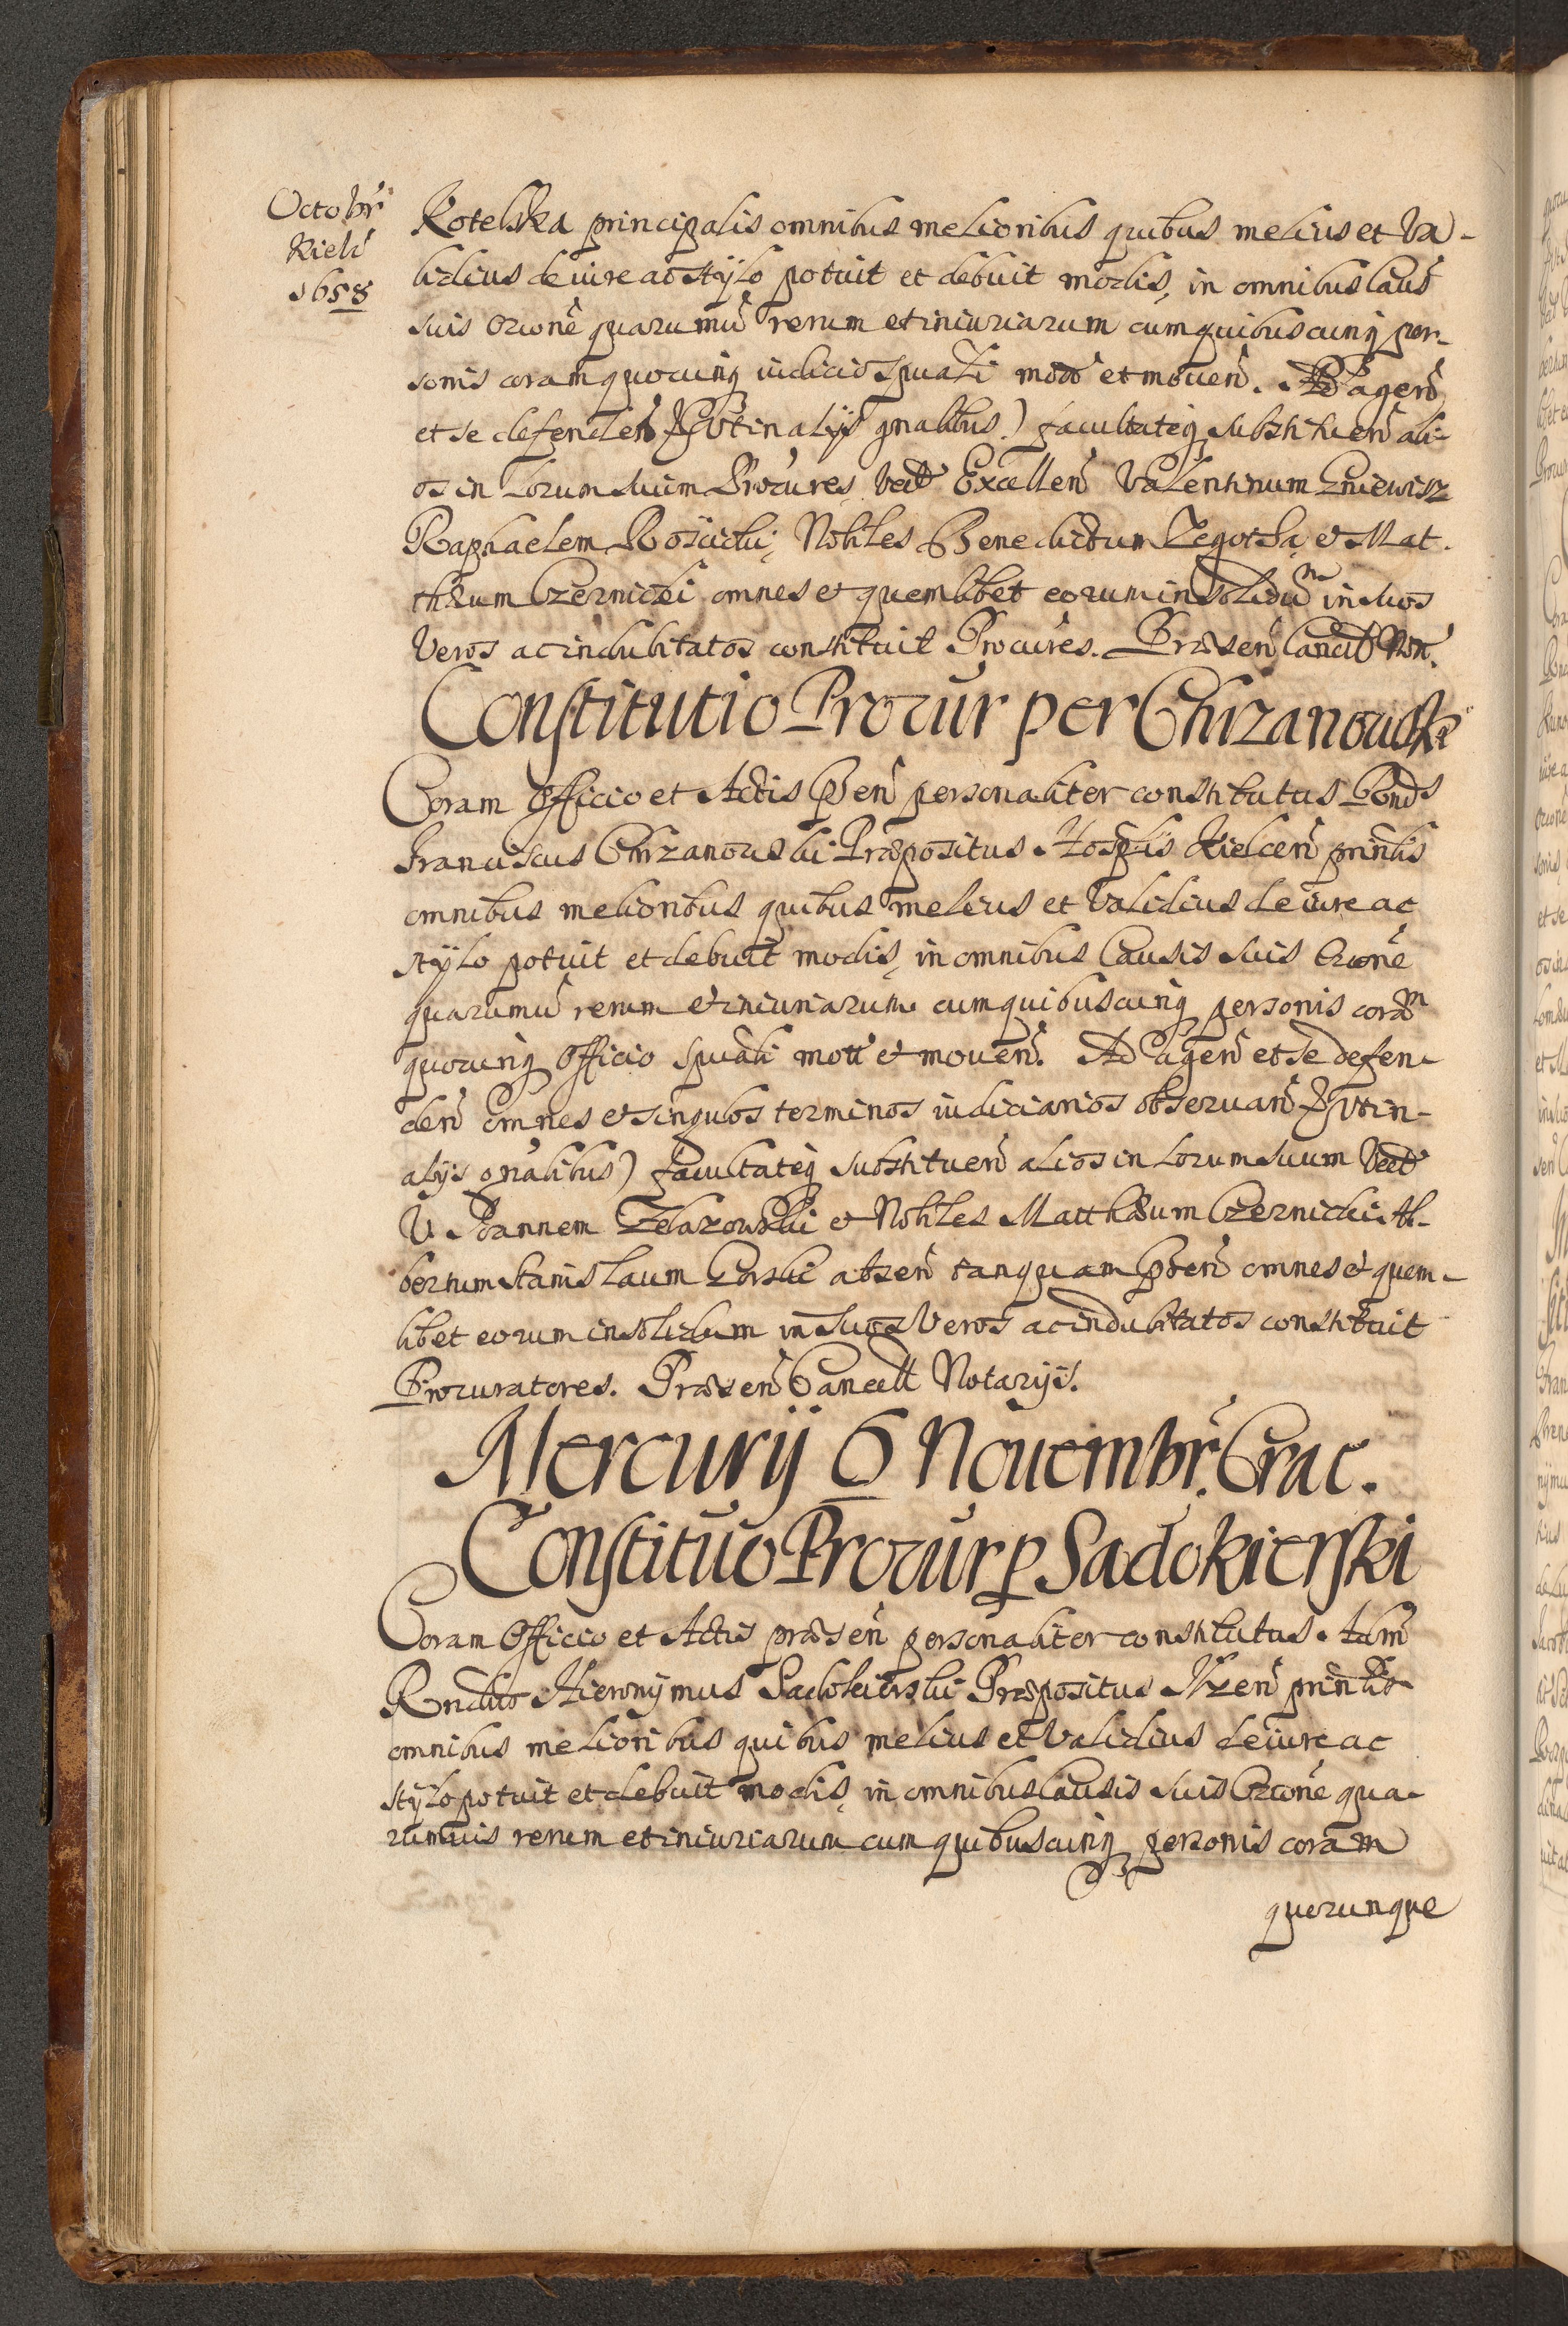 Octobr
Kielc
1658
Kotelska principalis omnibus melioribus quibus melius et va-
lidius de iure ac stÿlo potuit et debuit modis, in omnibus caus
suis occone quarumu rerum et iniuriarum cum quibuscunq per-
sonis coram quocunq iudicio spuali moto et mouen. Ad agen
et se defenden &c (ut in alijs gnalibus) facultateq substituen ali-
os in locum suum Procures, Vedt Excellen Valentinum
Raphaelem Nobiles Benedictum et Mat-
thæum Czernicki omnes et quemlibet eorum in solidum in suos
veros ac indubitatos constituit Procures. Præsen Cancell Not.
Constitutio Procur per Chrzanowski
Coram Officio et Actis Pœn personaliter constitutus Rond
Franciscus Chrzanowski Præpositus Hosplis Kielcen prinlis
omnibus melioribus quibus melius et validius de iure ac
stÿlo potuit et debuit modis, in omnibus Causis suis occone
quarumu rerum et iniuriarum cum quibuscunq personis coram
quocunq Officio spuali mott et mouen. Ad agen et se defen-
den omnes et singulos terminos iudiciarios obseruan &c (ut in
alijs gnalibus) facultateq substituen alios in locum suum Vedt
V Joannem Zelazowski et Nobiles Matthæum Czernicki Al-
bertum Stanislaum Gorski absen tanquam Pœn omnes et quem-
libet eorum in solidum in suos veros ac indubitatos constituit
Procuratores. Præsen Cancell Notarijs.
Mercurij 6 Nouembr. Crac.
Constitutio Procur p Sadokierski
Coram Officio et Actis præsen personaliter constitutus Adm
Rndus Hieronymus Sadokierski Præpositus prinlis
omnibus melioribus quibus melius et validius de iure ac
stÿlo potuit et debuit modis, in omnibus Causis suis occone qua-
rumuis rerum et iniuriarum cum quibuscunq personis coram
quocunque